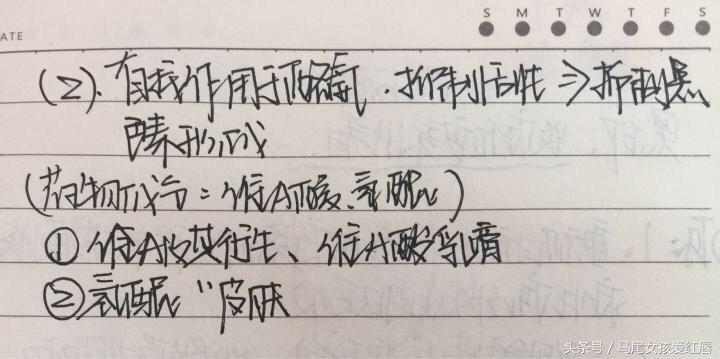 S M T W T F S
ATE
(2). 直接作用于酪氨. 抑制活性 ⇒ 抑制黑
色素形成
(药物成分: 维A酸、氢醌)
① 维A及其衍生、维A酸乳膏
② 氢醌 " 皮肤
头条号 / 马尾女孩爱红唇